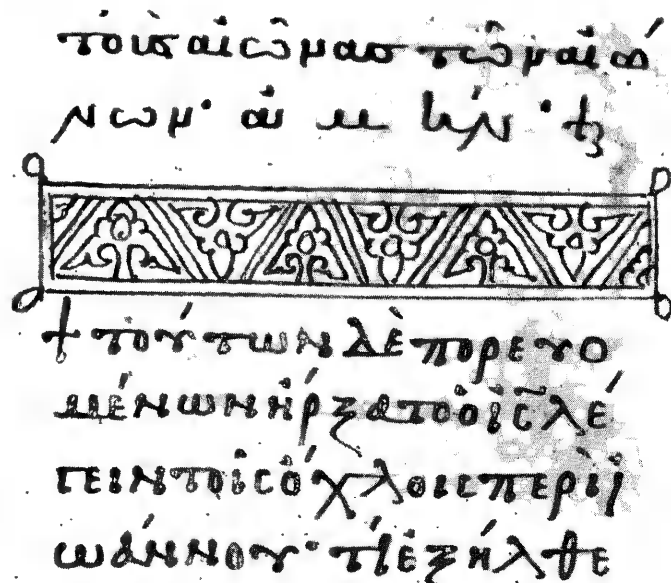 τοὺς αἰῶνας τῶν αἰώ
νων· ἀμήν·
+ τούτων δὲ πορευο
μένων ἤρξατο ὁ ις̅ λέ
γειν τοῖς ὄχλοις περὶ ἰ
ωάννου· τί ἐξήλθε